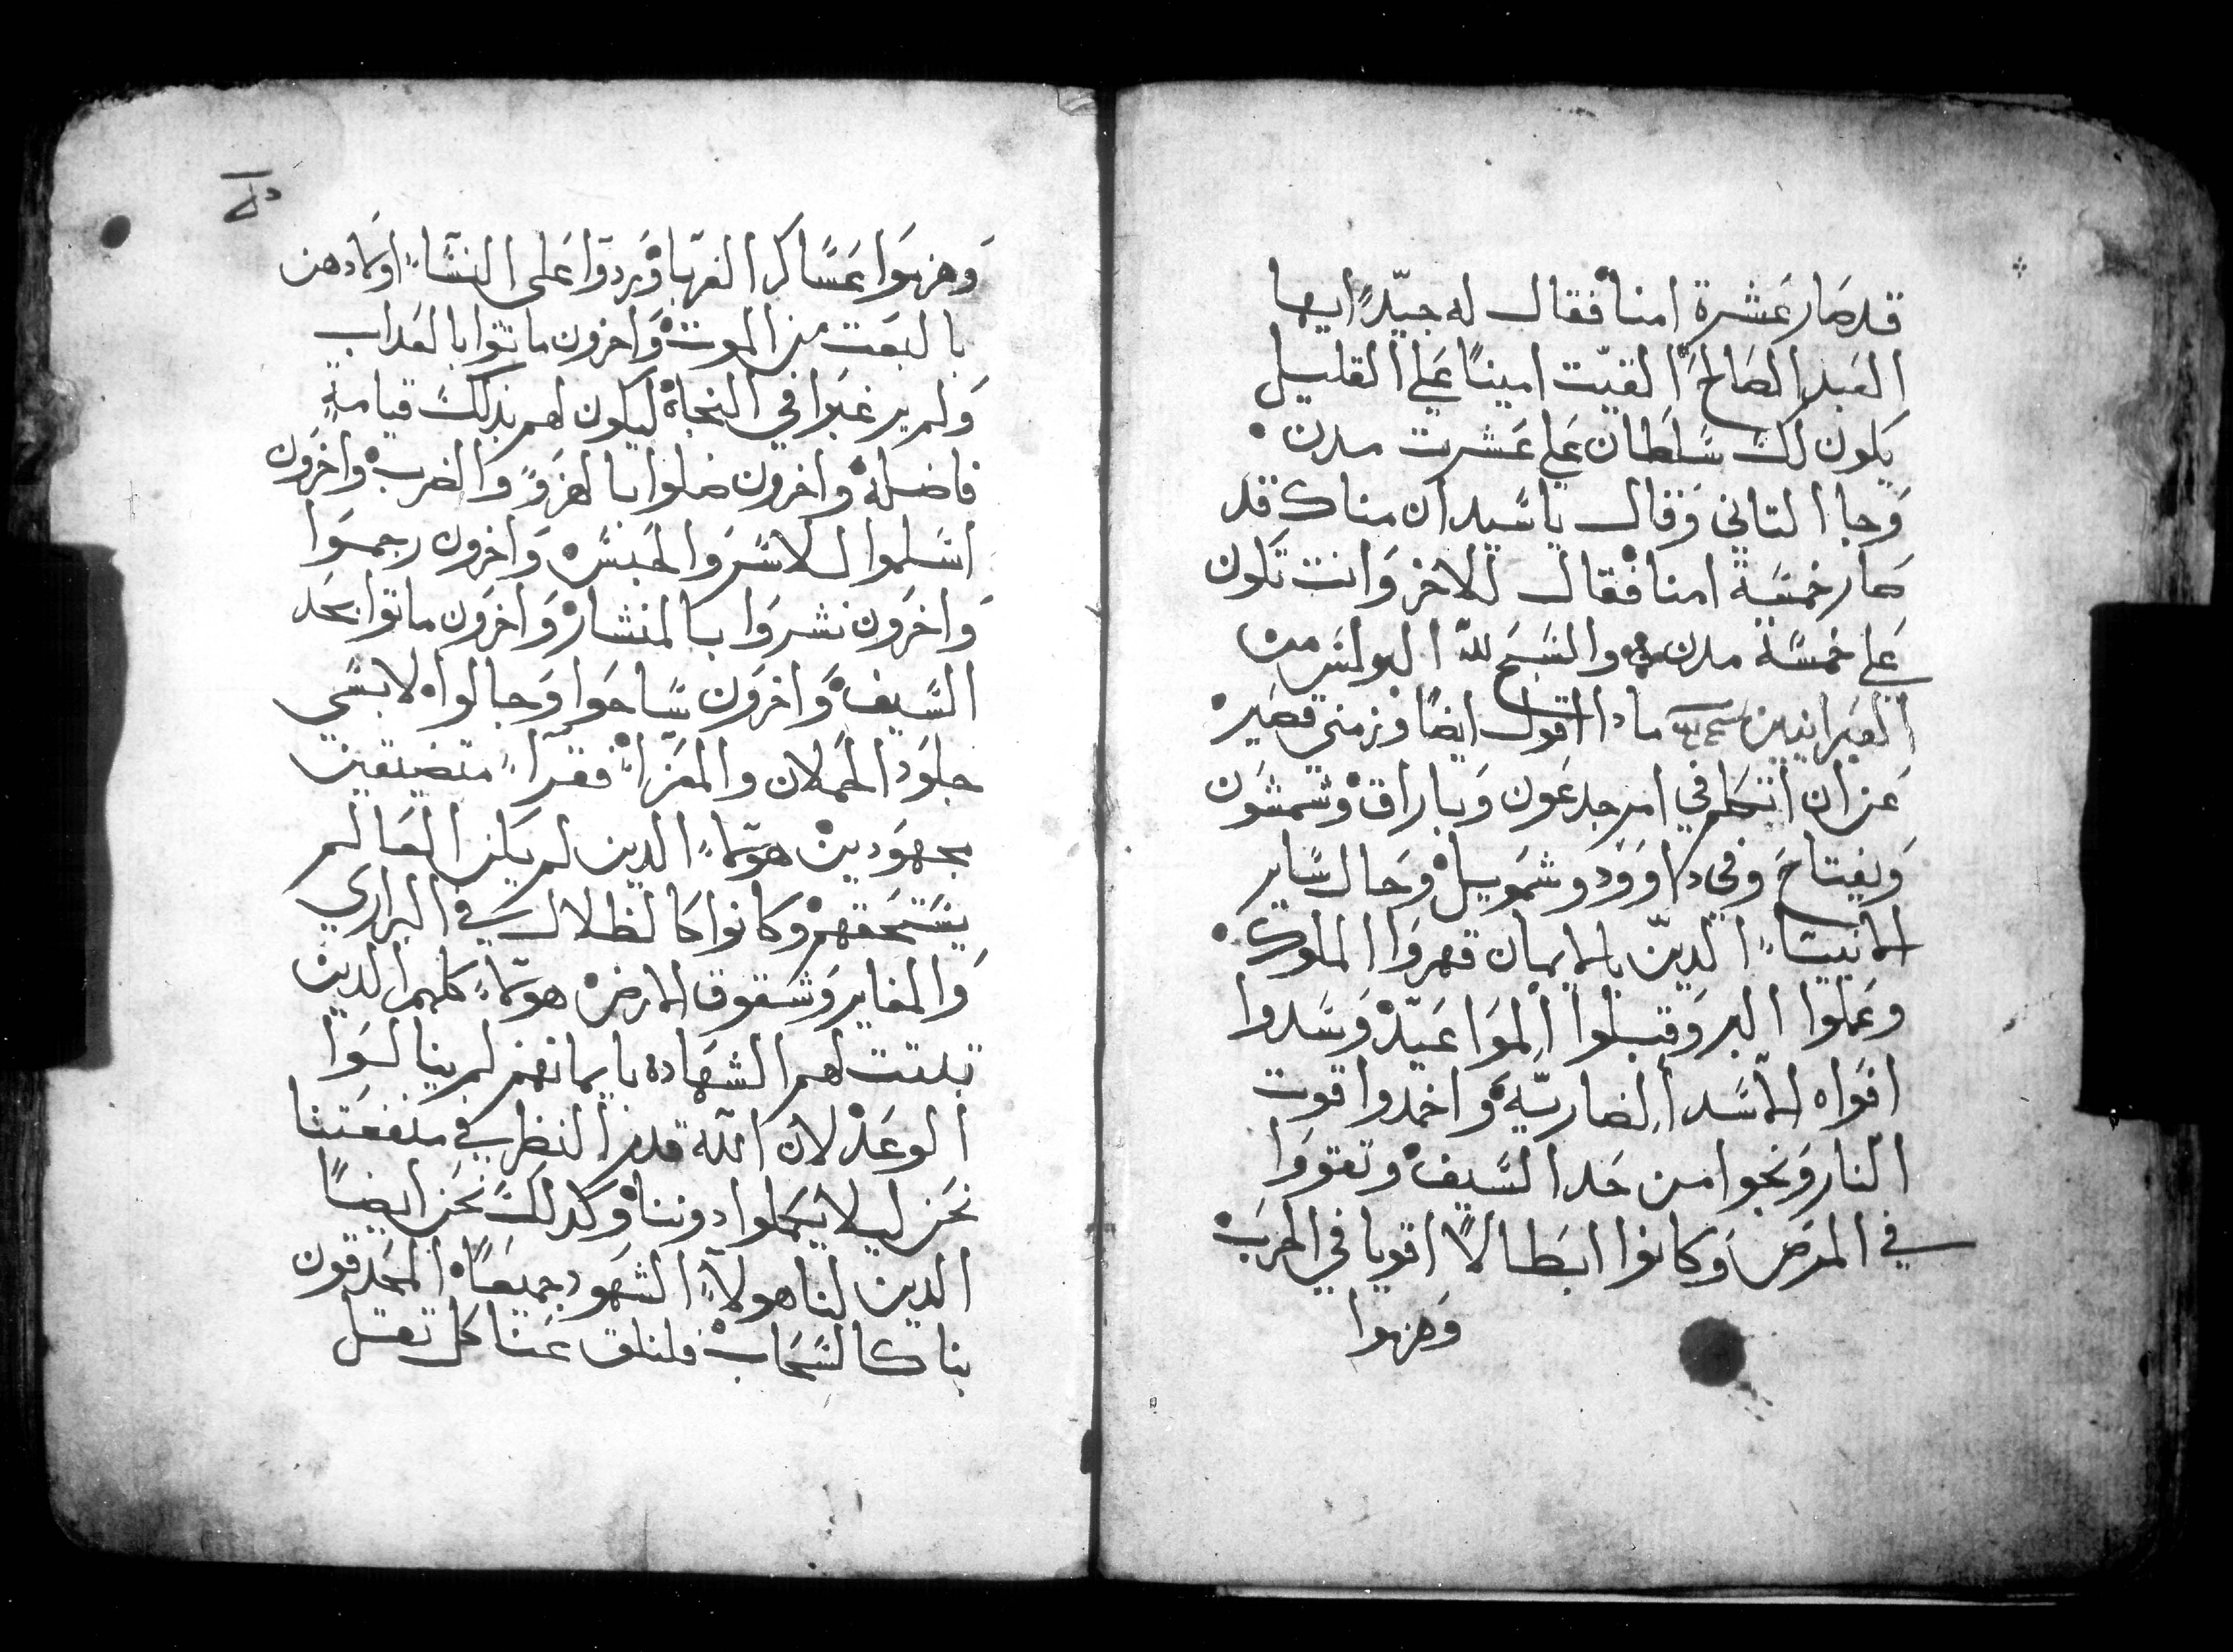 قد صَار عَشرة امنا فقال له جيّدًا ايها
العَبد الصَالح القيّت امينًا عَلي القليل
يَكون لكَ سَلطان عَلي عَشرت مدن
وَجا التاني وَقال يا سَيد ان مناك قد
صَار خمسَة امنا فقال للاخر وَانت تَكون
عَلي خمسَة مدن والسَبح لله البولس من
العَبرانيين ما دا اقول ايضًا وزمني قصَير
عَن ان اتكلم في امر جدعَون وَباراق وشمشون
وَيفتاح وفي داوَود وشمَويل وحَال سَاير
الانبيَاء الدين بالايمان قهروَا الملوك
وعَملوا البر وَقبلوا المَواعَيد وَسَدوا
افوَاه الاسَد الضاريّه وَاخمدوا قوت
النار وَنجوا من حَد السَيف وتقووَا
في المرَض وَكانوا ابَطالًا اقويا في الحرَب
وَهزموا
وَهزموَا عَسَاكر الغربا وَردوَا عَلى النسَاء اولادهن
بالبعَت من الموت وَاخرون ماتوا بالعَداب
وَلم يرغبَوا في النجاة ليكون لهم بذلكَ قيامة
فاضله واخرون ضلوا بالهزو والضرب واخرَون
اسَلموا للاسَر وَالحَبسَ وَاخرون رجموَا
وَاخرَون نشروَا بالمنشار وَاخرَون ماتوا بحَد
السَيف وَاخرَون سَاحَوا وَجالوا لابسَي
جلوَد الحَملان والمعَزا فقرآء متضيقين
مجهَودين هولاء الدين لم يَكن العَالم
يسَتحَقهم وكانوا كَالظلال في البراري
وَالمغاير وَشقوق الارض هولاء كلهم الدين
تبتت لهم الشهَاده بايمانهم لم ينالوَا
الوعَد لان الله قدم النظر في منفعَتنا
نحَن ليلا يكمَلوا دوننا وَكدلكَ نحَن ايضًا
الدين لنا هولاء الشهَود جميعًا المحَدقون
بنا كالسَحَاب فلنلق عَنا كل تقل